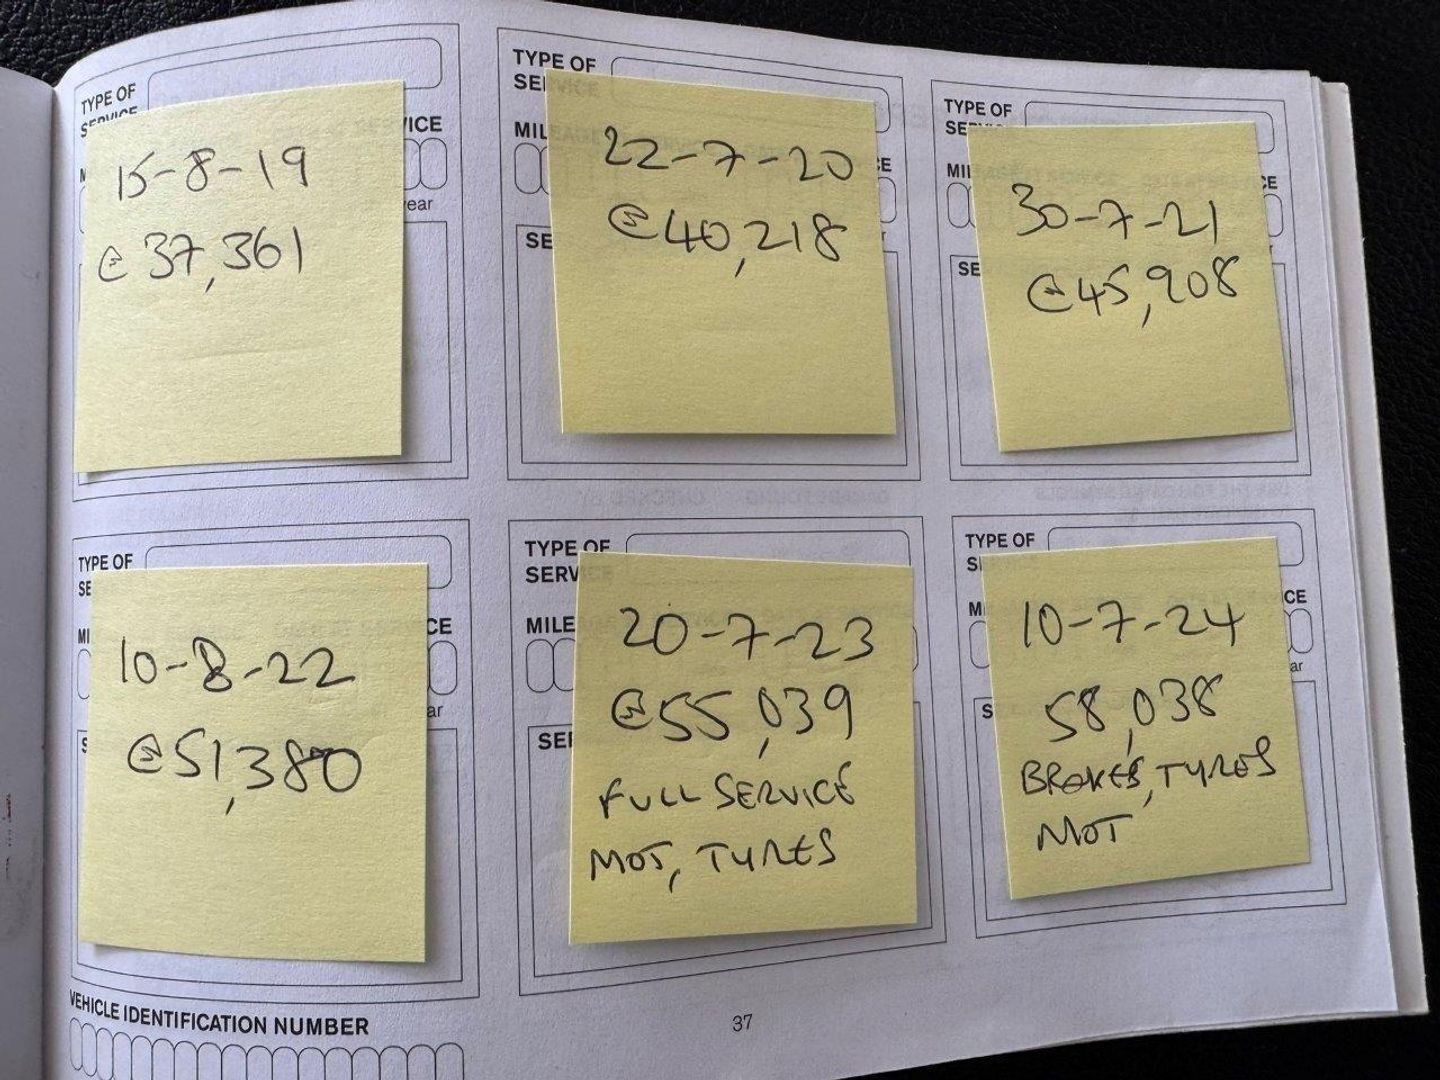 TYPE OF
SERVICE
15-8-19
@ 37,361
TYPE OF
SERVICE
22-7-20
@ 40,218
TYPE OF
30-7-21
@ 45,908
TYPE OF
10-8-22
@ 51,380
TYPE OF
SERVICE
20-7-23
@ 55,039
FULL SERVICE
MOT, TYRES
TYPE OF
10-7-24
58,038
BRAKES, TYRES
MOT
VEHICLE IDENTIFICATION NUMBER
37